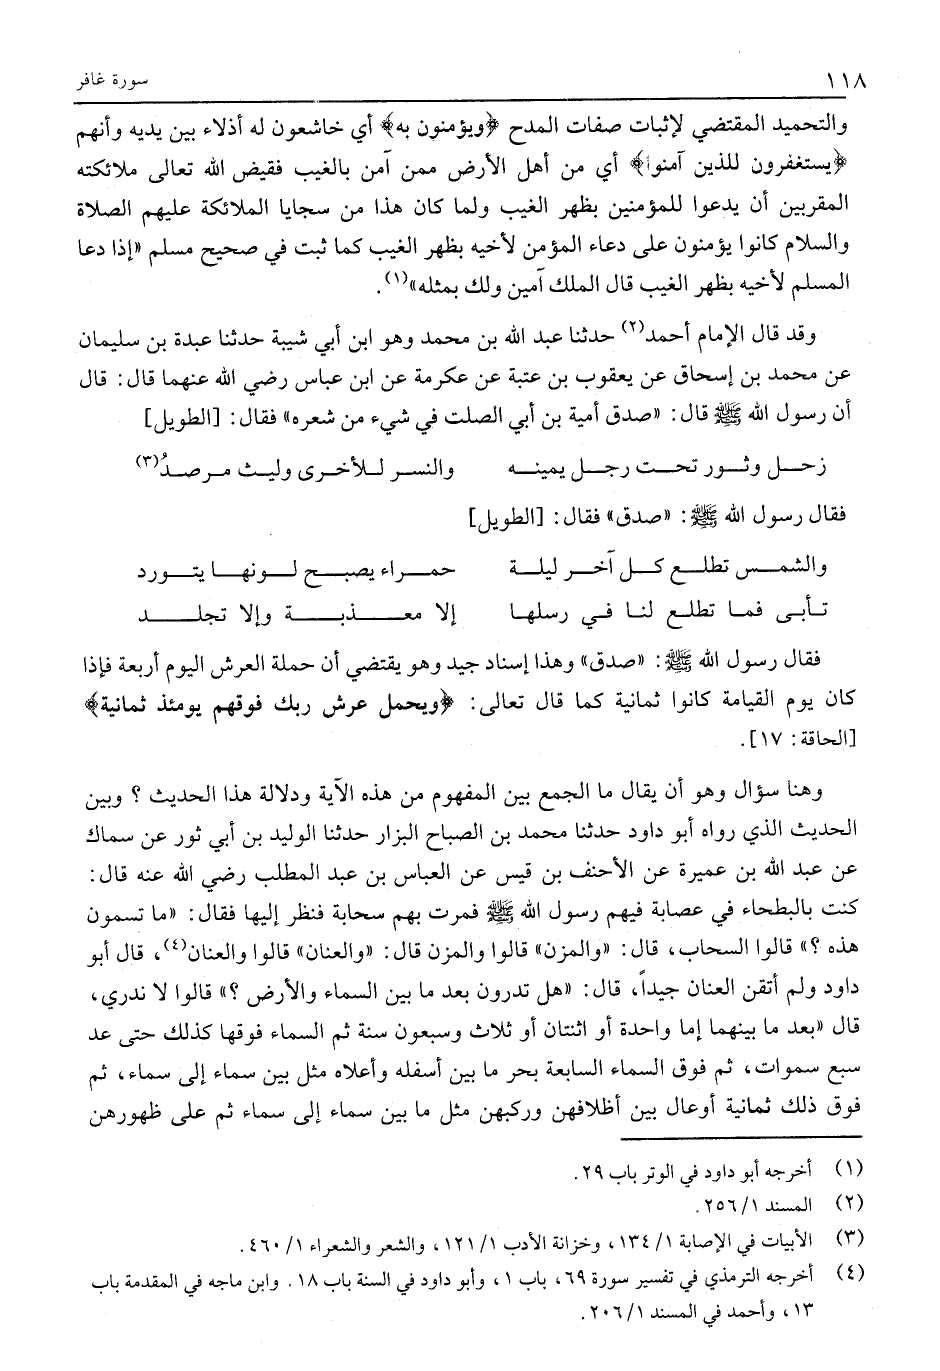 ١١٨ سورة غافر
والتحميد المقتضي لإثبات صفات المدح ﴿ويؤمنون به﴾ أي خاشعون له أذلاء بين يديه وأنهم
﴿يستغفرون للذين آمنوا﴾ أي من أهل الأرض ممن آمن بالغيب فقيض الله تعالى ملائكته
المقربين أن يدعوا للمؤمنين بظهر الغيب ولما كان هذا من سجايا الملائكة عليهم الصلاة
والسلام كانوا يؤمنون على دعاء المؤمن لأخيه بظهر الغيب كما ثبت في صحيح مسلم «إذا دعا
المسلم لأخيه بظهر الغيب قال الملك آمين ولك بمثله»(١).
وقد قال الإمام أحمد(٢) حدثنا عبد الله بن محمد وهو ابن أبي شيبة حدثنا عبدة بن سليمان
عن محمد بن إسحاق عن يعقوب بن عتبة عن عكرمة عن ابن عباس رضي الله عنهما قال: قال
أن رسول الله ﷺ قال: «صدق أمية بن أبي الصلت في شيء من شعره» فقال: [الطويل]
زحل وثور تحت رجل يمينه والنسر للأخرى وليث مرصدُ(٣)
فقال رسول الله ﷺ: «صدق» فقال: [الطويل]
والشمس تطلع كل آخر ليلة حمراء يصبح لونها يتورد
تأبى فما تطلع لنا في رسلها إلا معذبة وإلا تجلد
فقال رسول الله ﷺ: «صدق» وهذا إسناد جيد وهو يقتضي أن حملة العرش اليوم أربعة فإذا
كان يوم القيامة كانوا ثمانية كما قال تعالى: ﴿ويحمل عرش ربك فوقهم يومئذ ثمانية﴾
[الحاقة: ١٧].
وهنا سؤال وهو أن يقال ما الجمع بين المفهوم من هذه الآية ودلالة هذا الحديث ؟ وبين
الحديث الذي رواه أبو داود حدثنا محمد بن الصباح البزار حدثنا الوليد بن أبي ثور عن سماك
عن عبد الله بن عميرة عن الأحنف بن قيس عن العباس بن عبد المطلب رضي الله عنه قال:
كنت بالبطحاء في عصابة فيهم رسول الله ﷺ فمرت بهم سحابة فنظر إليها فقال: «ما تسمون
هذه ؟» قالوا السحاب، قال: «والمزن» قالوا والمزن قال: «والعنان» قالوا والعنان(٤)، قال أبو
داود ولم أتقن العنان جيداً، قال: «هل تدرون بعد ما بين السماء والأرض ؟» قالوا لا ندري،
قال «بعد ما بينهما إما واحدة أو اثنتان أو ثلاث وسبعون سنة ثم السماء فوقها كذلك حتى عد
سبع سموات، ثم فوق السماء السابعة بحر ما بين أسفله وأعلاه مثل بين سماء إلى سماء، ثم
فوق ذلك ثمانية أوعال بين أظلافهن وركبهن مثل ما بين سماء إلى سماء ثم على ظهورهن
(١) أخرجه أبو داود في الوتر باب ٢٩.
(٢) المسند ١/ ٢٥٦.
(٣) الأبيات في الإصابة ١/ ١٣٤، وخزانة الأدب ١/ ١٢١، والشعر والشعراء ١/ ٤٦٠.
(٤) أخرجه الترمذي في تفسير سورة ٦٩، باب ١، وأبو داود في السنة باب ١٨. وابن ماجه في المقدمة باب
١٣، وأحمد في المسند ١/ ٢٠٦.